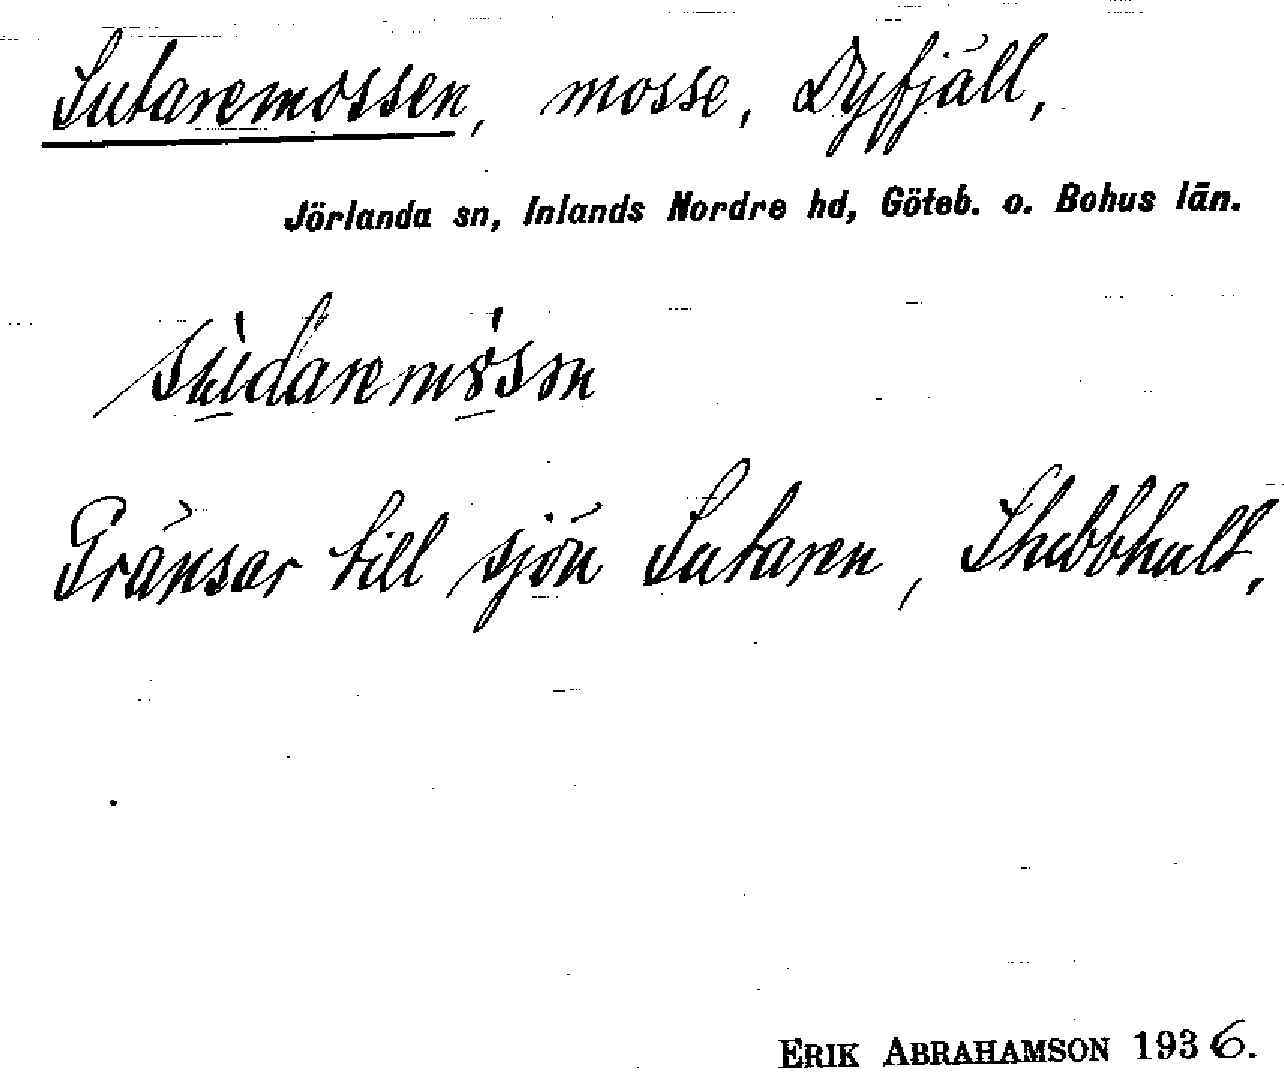 Sutaremossen, mosse, Dyfjäll,
Jörlanda sn, Inlands Nordre hd, Göteb. o. Bohus län.
Gränsar till sjön Sutaren, Stubbhult,
ERIK ABRAHAMSON 1936.